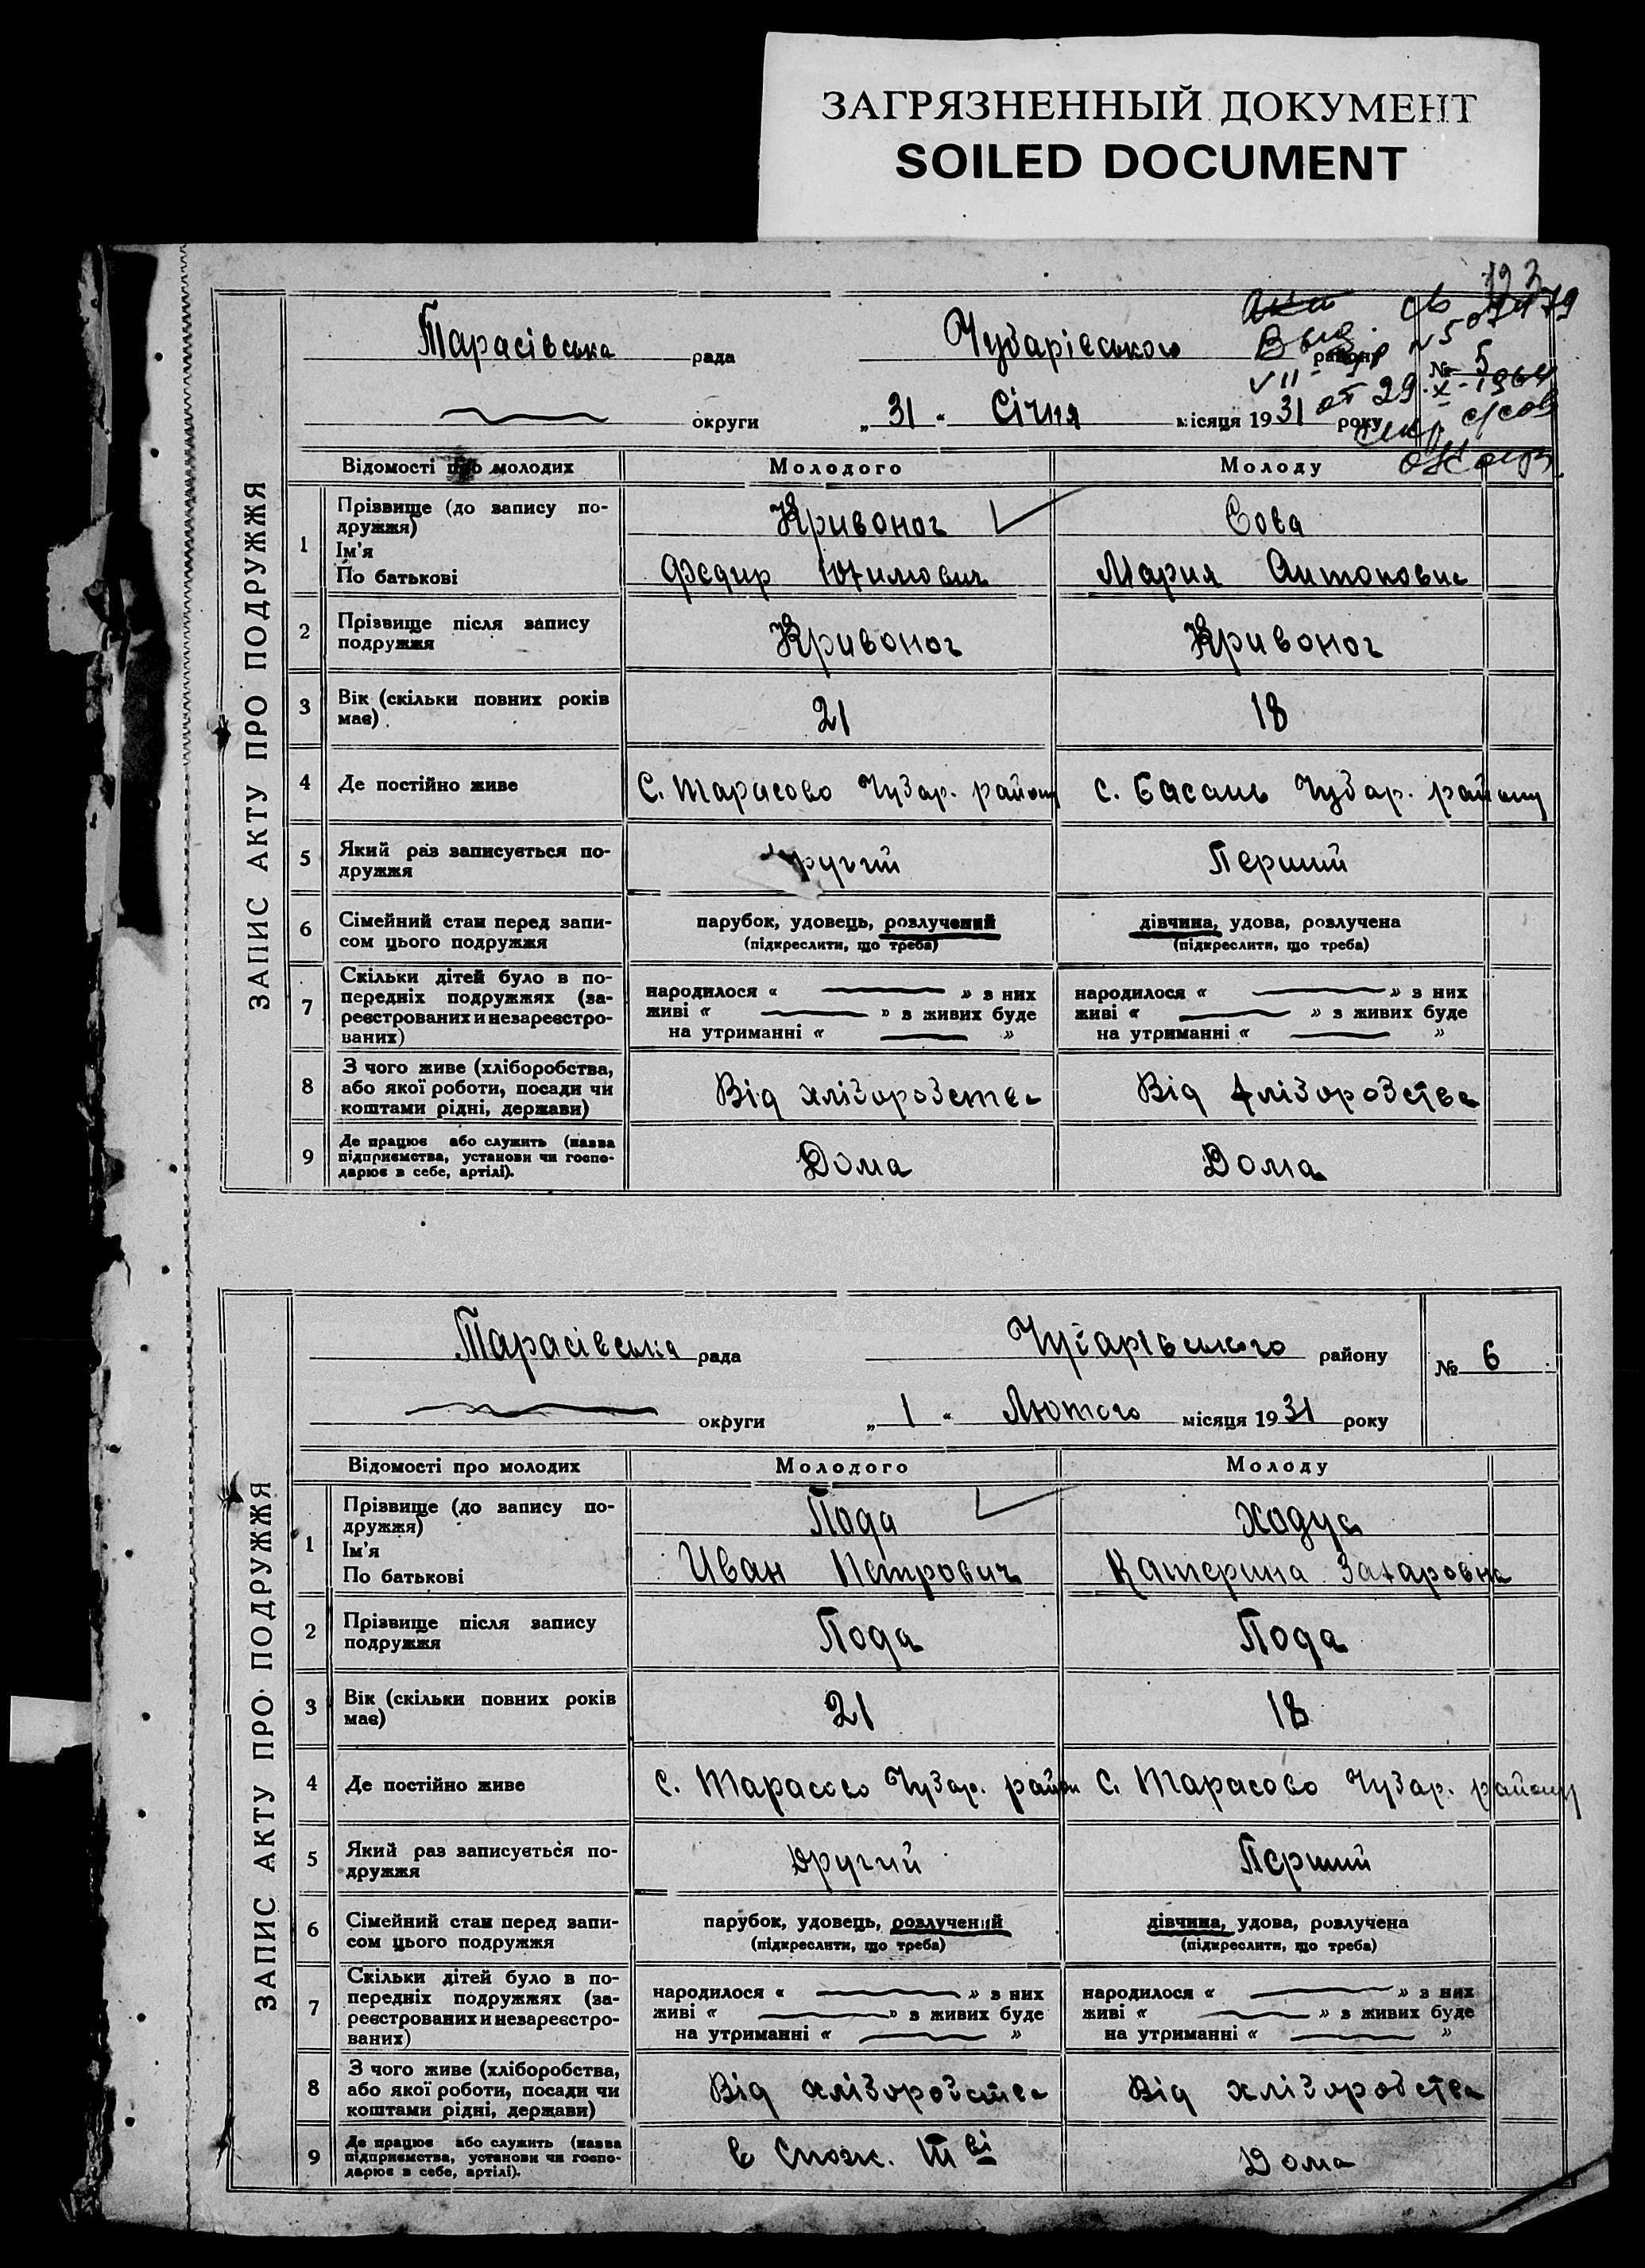 ЗАГРЯЗНЕННЫЙ ДОКУМЕНТ
SOILED DOCUMENT
ЗАПИС АКТУ ПРО ПОДРУЖЖЯ
Тарасівська рада Чубарівського району № 5
от 29
округи „31“ Січня місяця 1931 року
Відомості про молодих Молодого Молоду
1 Прізвище (до запису по-
дружжя) Кривоног Сова
Ім'я
По батькові Федир Юхимович Мария Антоновна
2 Прізвище після запису
подружжя Кривоног Кривоног
3 Вік (скільки повних років
має) 21 18
4 Де постійно живе С. Тарасово Чубар. району С. Басань Чубар. району
5 Який раз записується по-
дружжя другий Перший
6 Сімейний стан перед запи-
сом цього подружжя
парубок, удовець, розлучений дівчина, удова, розлучена
(підкреслити, що треба) (підкреслити, що треба)
7 Скільки дітей було в по-
передніх подружжях (за-
реєстрованих и незареєстро-
ваних)
народилося « » з них народилося « » з них
живі « » з живих буде живі « » з живих буде
на утриманні « » на утриманні « »
8 З чого живе (хліборобства,
або якої роботи, посади чи
коштами рідні, держави) Від хліборобства Від хліборобства
9 Де працює або служить (назва
підприємства, установи чи госпо-
дарює в себе, артілі). Дома Дома
ЗАПИС АКТУ ПРО ПОДРУЖЖЯ
Тарасівська рада Чубарівського району № 6
округи „1“ Лютого місяця 1931 року
Відомості про молодих Молодого Молоду
1 Прізвище (до запису по-
дружжя) Пода Ходус
Ім'я
По батькові Иван Петрович Катерина Захаровна
2 Прізвище після запису
подружжя Пода Пода
3 Вік (скільки повних років
має) 21 18
4 Де постійно живе С. Тарасово Чубар. район С. Тарасово Чубар. району
5 Який раз записується по-
дружжя другий Перший
6 Сімейний стан перед запи-
сом цього подружжя
парубок, удовець, розлучений дівчина, удова, розлучена
(підкреслити, що треба) (підкреслити, що треба)
7 Скільки дітей було в по-
передніх подружжях (за-
реєстрованих и незареєстро-
ваних)
народилося « » з них народилося « » з них
живі « » з живих буде живі « » з живих буде
на утриманні « » на утриманні « »
8 З чого живе (хліборобства,
або якої роботи, посади чи
коштами рідні, держави) Від хліборобства Від хліборобства
9 Де працює або служить (назва
підприємства, установи чи госпо-
дарює в себе, артілі). в Спож. Т-ві Дома